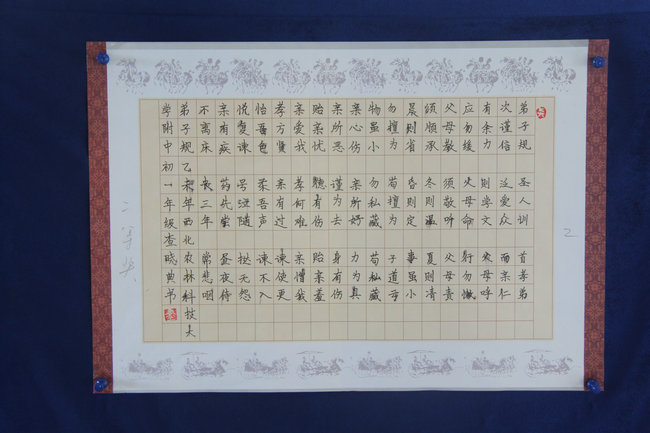 弟子规 圣人训 首孝弟
次谨信 泛爱众 而亲仁
有余力 则学文 父母呼
应勿缓 父母命 行勿懒
父母教 须敬听 父母责
须顺承 冬则温 夏则清
晨则省 昏则定 事虽小
勿擅为 苟擅为 子道
物虽小 勿私藏 苟私藏
亲心伤 亲所好 力为具
亲所恶 谨为去 身有伤
贻亲忧 德有伤 贻亲羞
亲爱我 孝何难 亲憎我
孝方贤 亲有过 谏使更
怡吾色 柔吾声 谏不入
悦复谏 号泣随 挞无怨
亲有疾 药先尝 昼夜侍
不离床 丧三年 常悲咽
弟子规 乙 年西北农林科技大
学附中初一年级查晓典书
二等奖
2